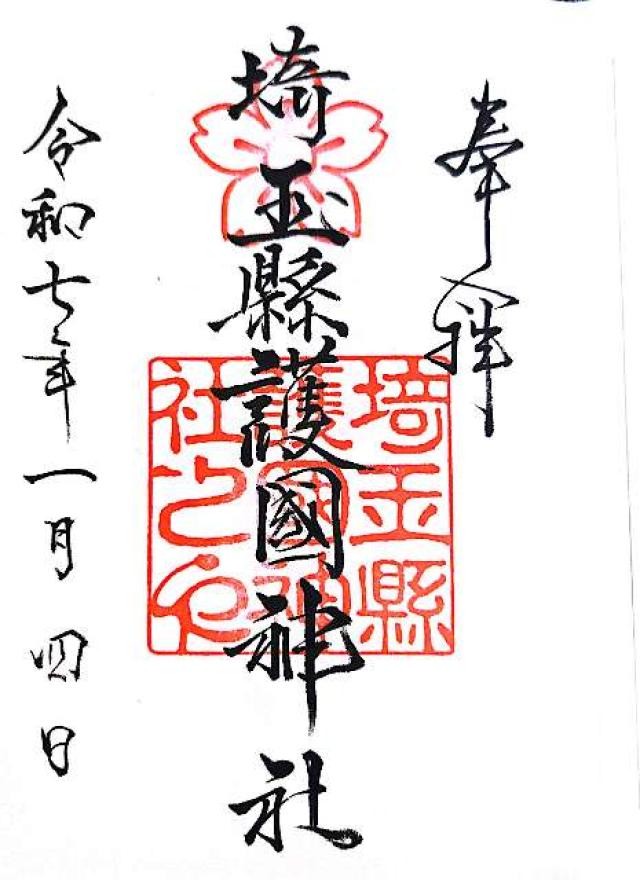 奉拝
埼玉縣護國神社
埼玉縣
護國神
社之印
令和七年一月四日